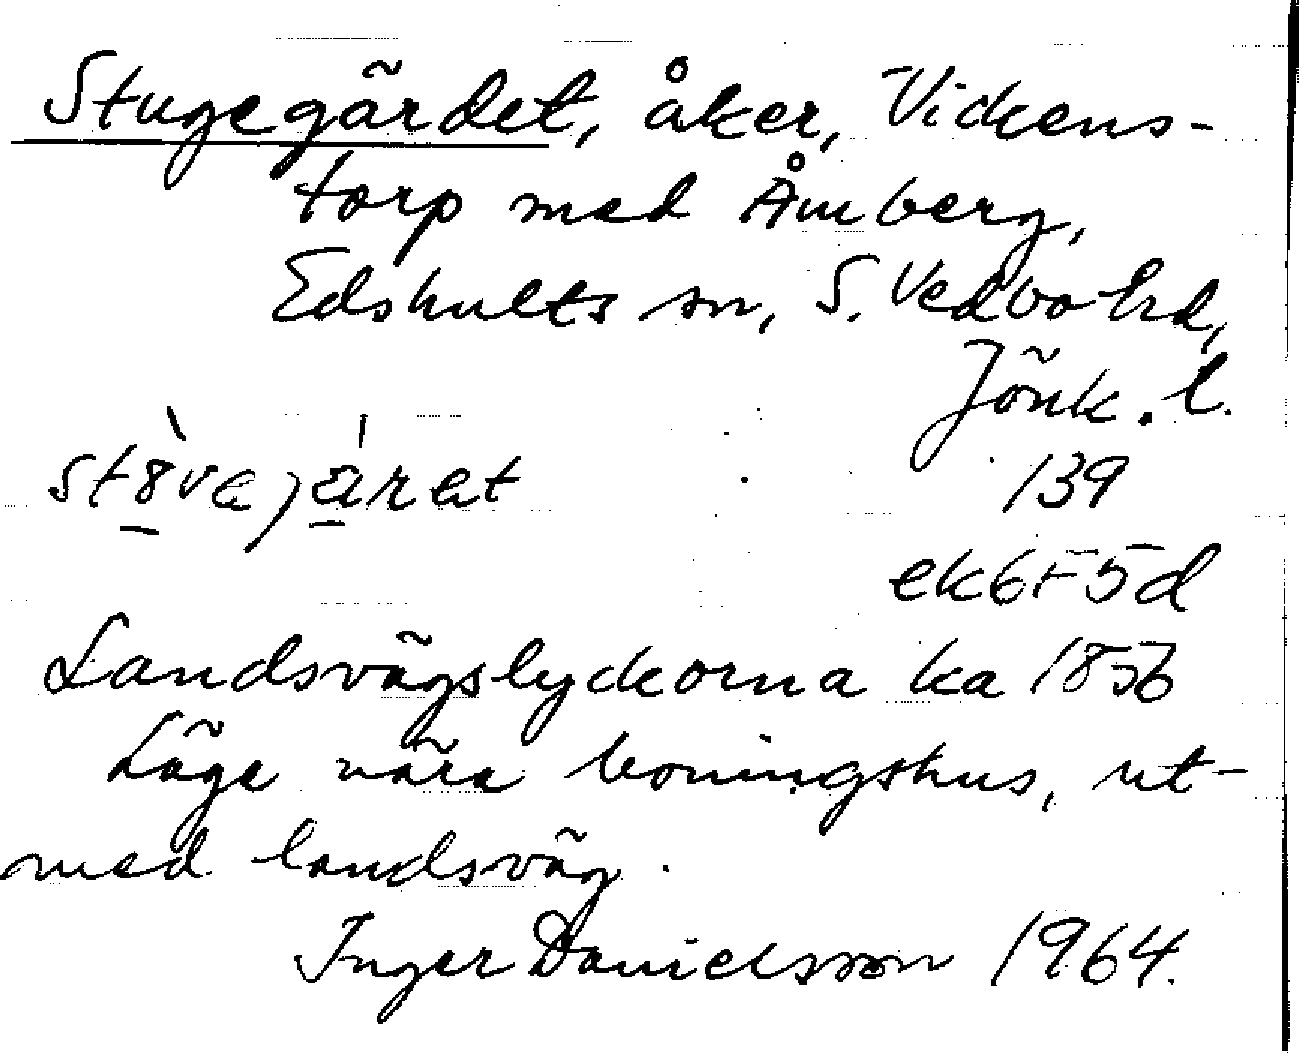 Stugegärdet, åker, Vickens-
torp med Åmberg,
Edshults sn, S. Vedbo hd,
Jönk. l.
139
ek 6F5d
Landsvägslyckorna ka 1856
Läge nära boningshus, ut-
med landsväg.
Inger Danielsson 1964.